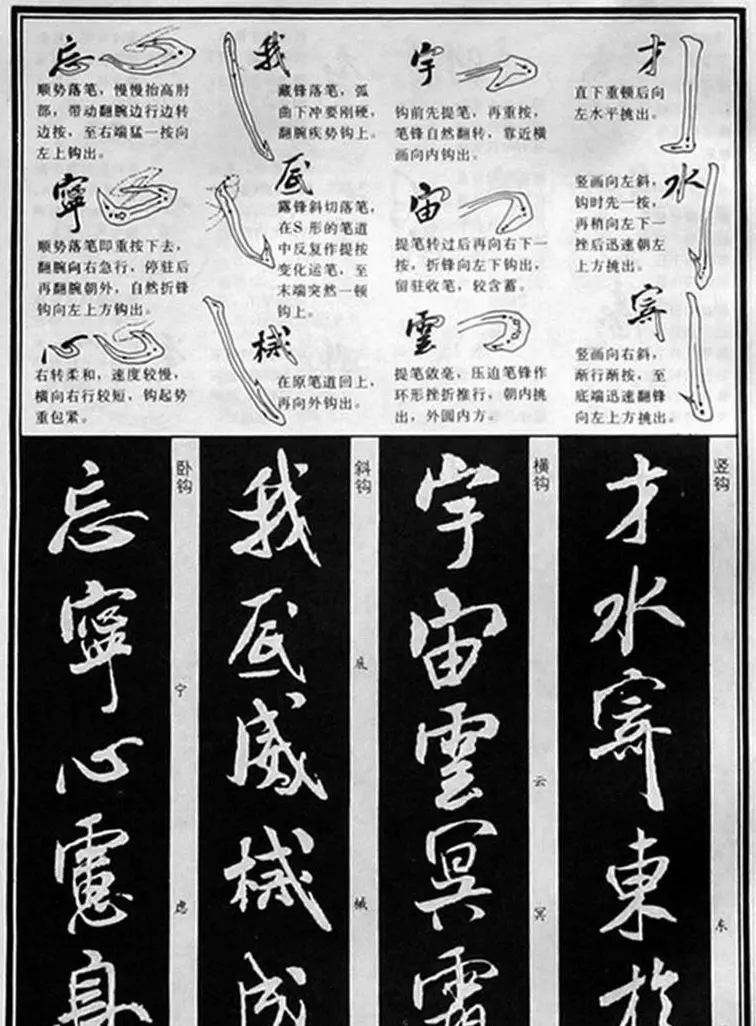 才
直下重顿后向
左水平挑出。
水
竖画向左斜，
钩时先一按，
再稍向左下一
挫后迅速朝左
上方挑出。
寄
竖画向右斜，
渐行渐按，至
底端迅速翻锋
向左上方挑出。
宇
钩前先提笔，再重按，
笔锋自然翻转，靠近横
画向内钩出。
宙
提笔转过后再向右下一
按，折锋向左下钩出，
留驻收笔，较含蓄。
雲
提笔敛毫，压边笔锋作
环形挫折推行，朝内挑
出，外圆内方。
我
藏锋落笔，弧
曲下冲要刚硬，
翻腕疾势钩上。
底
露锋斜切落笔，
在S形的笔道
中反复作提按
变化运笔，至
末端突然一顿
钩上。
械
在原笔道回上，
再向外钩出。
忘
顺势落笔，慢慢抬高肘
部，带动翻腕边行边转
边按，至右端猛一按向
左上钩出。
寧
顺势落笔即重按下去，
翻腕向右急行，停驻后
再翻腕朝外，自然折锋
钩向左上方钩出。
心
右转柔和，速度较慢，
横向右行较短，钩起势
重包紧。
竖钩 东
才水寄東於
横钩 云 冥
宇宙雲冥
斜钩 底 械
我底威械成
卧钩 宁 虑
忘寧心慮身